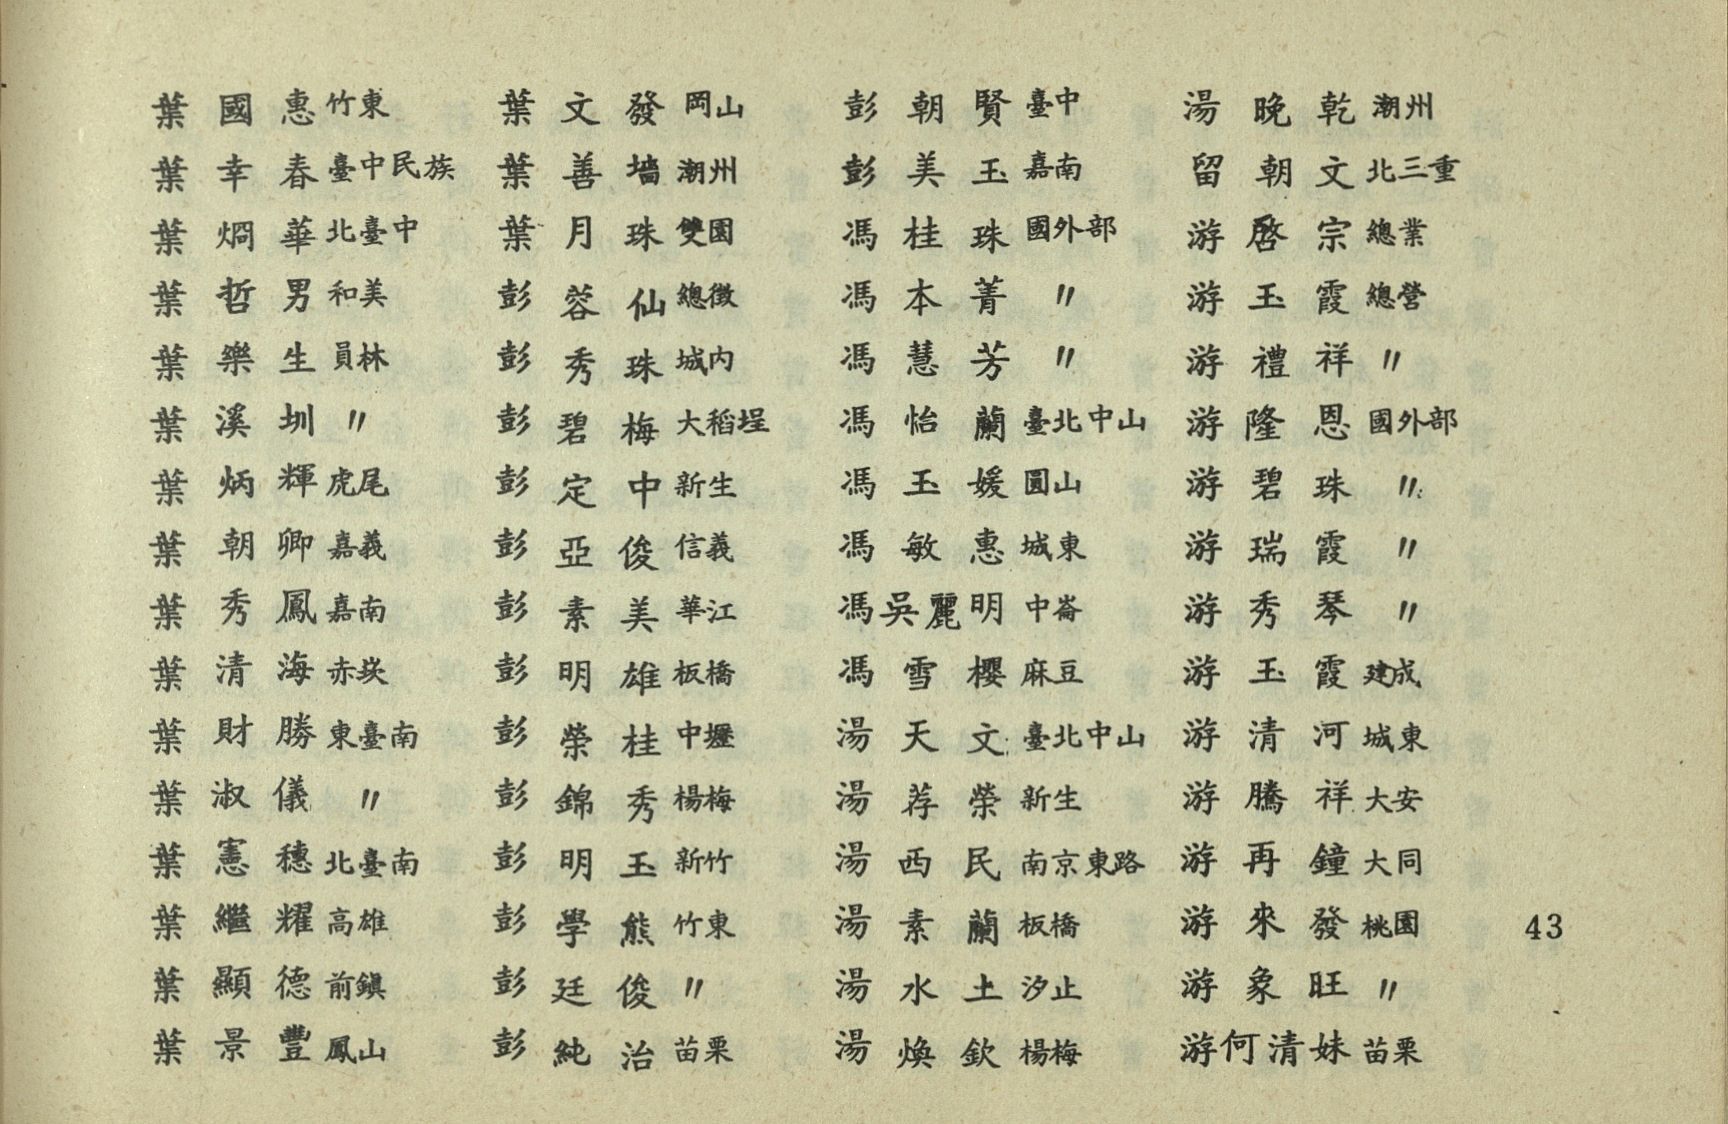 葉國惠 竹東
葉幸春 臺中民族
葉烱華 北臺中
葉哲男 和美
葉樂生 員林
葉溪圳 〃
葉炳輝 虎尾
葉朝卿 嘉義
葉秀鳳 嘉南
葉清海 赤崁
葉財勝 東臺南
葉淑儀 〃
葉憲穗 北臺南
葉繼耀 高雄
葉顯德 前鎮
葉景豐 鳳山
葉文發 岡山
葉善墻 潮州
葉月珠 雙園
彭蓉仙 總徵
彭秀珠 城內
彭碧梅 大稻埕
彭定中 新生
彭亞俊 信義
彭素美 華江
彭明雄 板橋
彭榮桂 中壢
彭錦秀 楊梅
彭明玉 新竹
彭學熊 竹東
彭廷俊 〃
彭純治 苗栗
彭朝賢 臺中
彭美玉 嘉南
馮桂珠 國外部
馮本菁 〃
馮慧芳 〃
馮怡蘭 臺北中山
馮玉媛 圓山
馮敏惠 城東
馮吳麗明 中崙
馮雪櫻 麻豆
湯天文 臺北中山
湯荐榮 新生
湯西民 南京東路
湯素蘭 板橋
湯水土 汐止
湯煥欽 楊梅
湯晚乾 潮州
留朝文 北三重
游啓宗 總業
游玉霞 總營
游禮祥 〃
游隆恩 國外部
游碧珠 〃
游瑞霞 〃
游秀琴 〃
游玉霞 建成
游清河 城東
游騰祥 大安
游再鐘 大同
游來發 桃園
游象旺 〃
游何清妹 苗栗
43